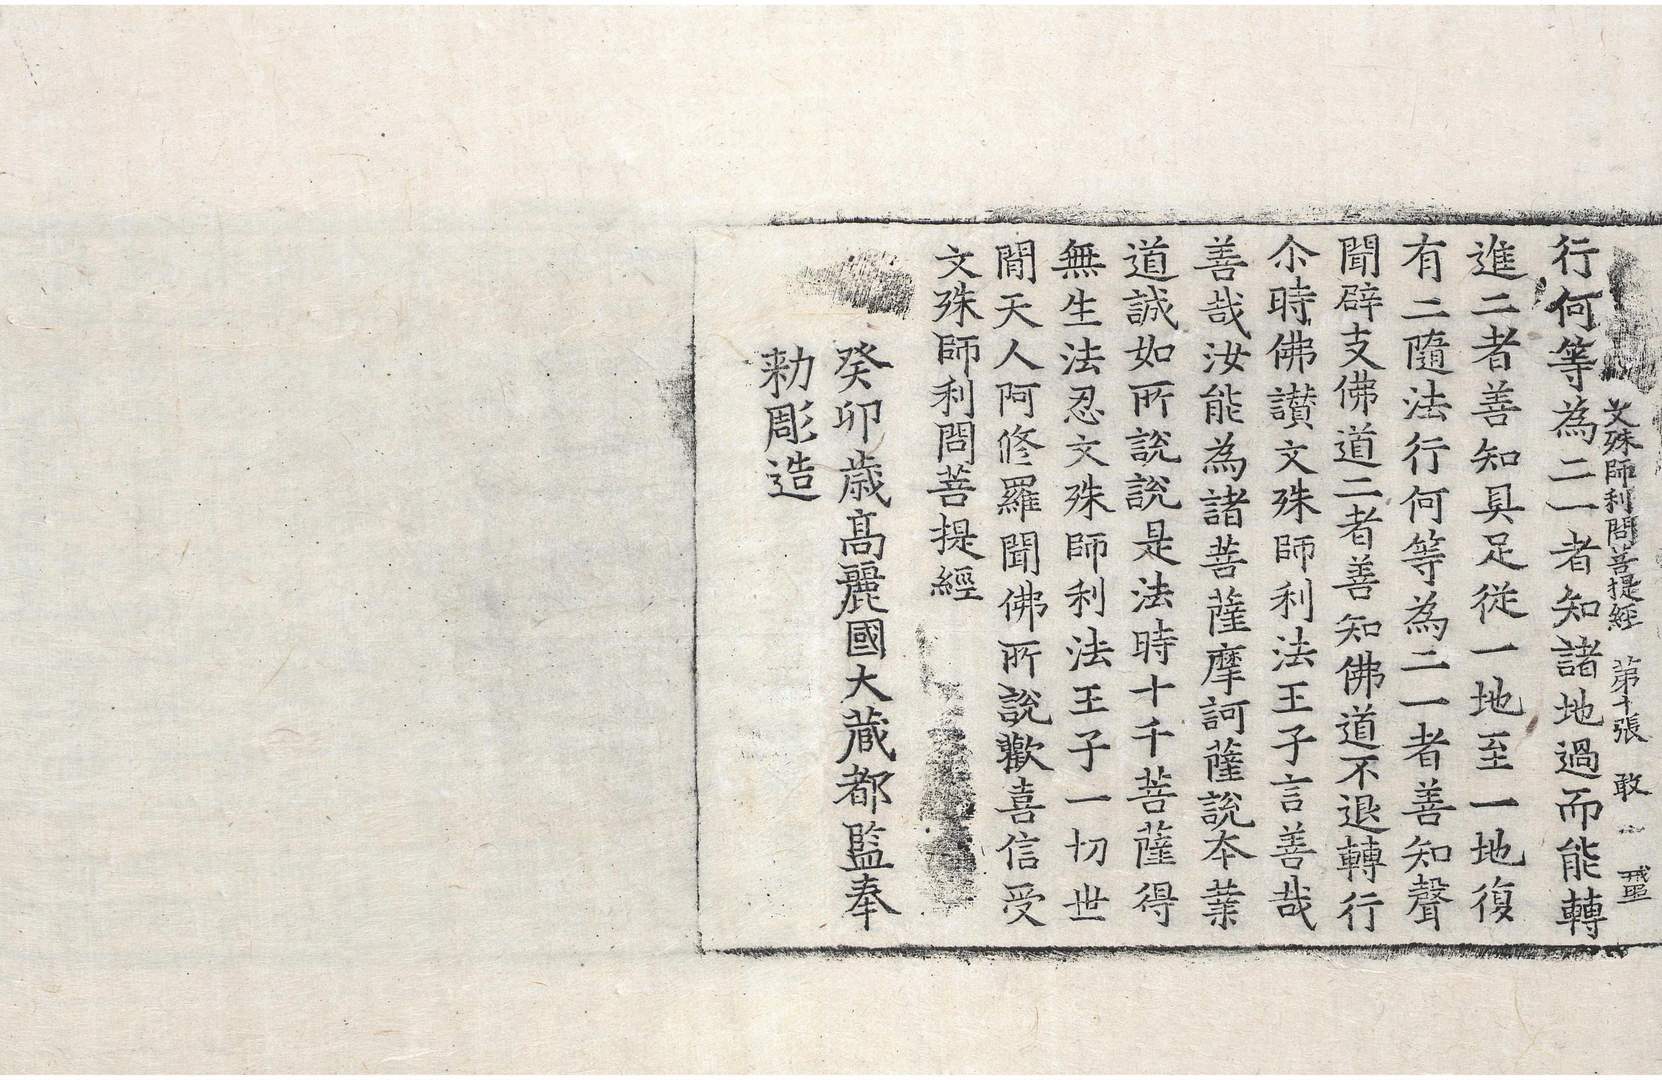 文殊師利問菩提經 第十張 敢
行何等為二一者知諸地過而能轉
進二者善知具足從一地至一地復
有二隨法行何等為二一者善知聲
聞辟支佛道二者善知佛道不退轉行
尒時佛讃文殊師利法王子言善哉
善哉汝能為諸菩薩摩訶薩說夲業
道誠如所說說是法時十千菩薩得
無生法忍文殊師利法王子一切世
閒天人阿修羅聞佛所說歡喜信受
文殊師利問菩提經
癸卯歳髙麗國大蔵都監奉
勑彫造